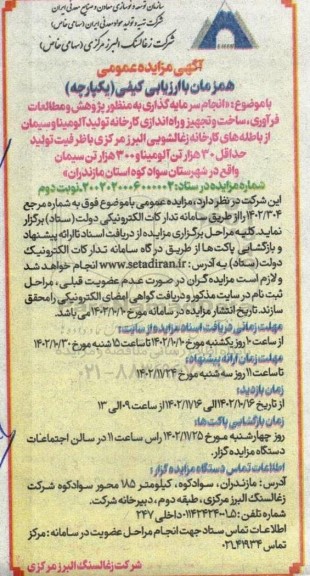 سازمان توسعه و نوسازی معادن و صنایع معدنی ایران
شرکت تهیه و تولید مواد معدنی ایران (سهامی خاص)
شرکت زغالسنگ البرز مرکزی (سهامی خاص)
آگهی مزایده عمومی
همزمان با ارزیابی کیفی (یکپارچه)
با موضوع: «انجام سرمایه گذاری به منظور پژوهش و مطالعات
فرآوری، ساخت و تجهیز و راه اندازی کارخانه تولید آلومینا و سیمان
از باطله های کارخانه زغالشویی البرز مرکزی با ظرفیت تولید
حداقل ۳۰ هزار تن آلومینا و ۳۰۰ هزار تن سیمان
واقع در شهرستان سوادکوه استان مازندران»
شماره مزایده در ستاد: ۲۰۰۲۰۲۰۰۰۶۰۰۰۰۰۲. نوبت دوم
این شرکت در نظر دارد، مزایده عمومی با موضوع فوق به شماره مرجع
۱۴۰۲/۳۰۴ را از طریق سامانه تدارکات الکترونیکی دولت (ستاد) برگزار
نماید. کلیه مراحل برگزاری مزایده از دریافت اسناد تا ارائه پیشنهاد
و بازگشایی پاکت ها از طریق درگاه سامانه تدارکات الکترونیک
دولت (ستاد) به آدرس: www.setadiran.ir انجام خواهد شد
و لازم است مزایده گران در صورت عدم عضویت قبلی، مراحل
ثبت نام در سایت مذکور و دریافت گواهی امضای الکترونیکی را محقق
سازند. تاریخ انتشار مزایده در سامانه مورخ ۱۴۰۲/۱۰/۱۰ می باشد.
مهلت زمانی دریافت اسناد مزایده از سایت:
از ساعت ۱۰ روز یکشنبه مورخ ۱۴۰۲/۱۰/۱۰ تا ساعت ۱۵ شنبه مورخ ۱۴۰۲/۱۰/۳۰
مهلت زمان ارائه پیشنهاد:
تا ساعت ۱۱ روز سه شنبه مورخ ۱۴۰۲/۱۱/۲۴
زمان بازدید:
از تاریخ ۱۴۰۲/۱۰/۱۶ الی ۱۴۰۲/۱۱/۱۶ از ساعت ۰۹ الی ۱۳
زمان بازگشایی پاکت ها:
روز چهارشنبه مورخ ۱۴۰۲/۱۱/۲۵ راس ساعت ۱۱ در سالن اجتماعات
دستگاه مزایده گزار.
اطلاعات تماس دستگاه مزایده گزار:
آدرس: مازندران، سوادکوه، کیلومتر ۱۸۵ محور سوادکوه شرکت
زغالسنگ البرز مرکزی، طبقه دوم، دبیرخانه شرکت.
شماره تلفن: ۰۱۱۴۲۴۲۴۰۰۱،۵ داخلی ۲۴۷
اطلاعات تماس ستاد جهت انجام مراحل عضویت در سامانه: مرکز
تماس ۰۲۱،۴۱۹۳۴
شرکت زغالسنگ البرز مرکزی